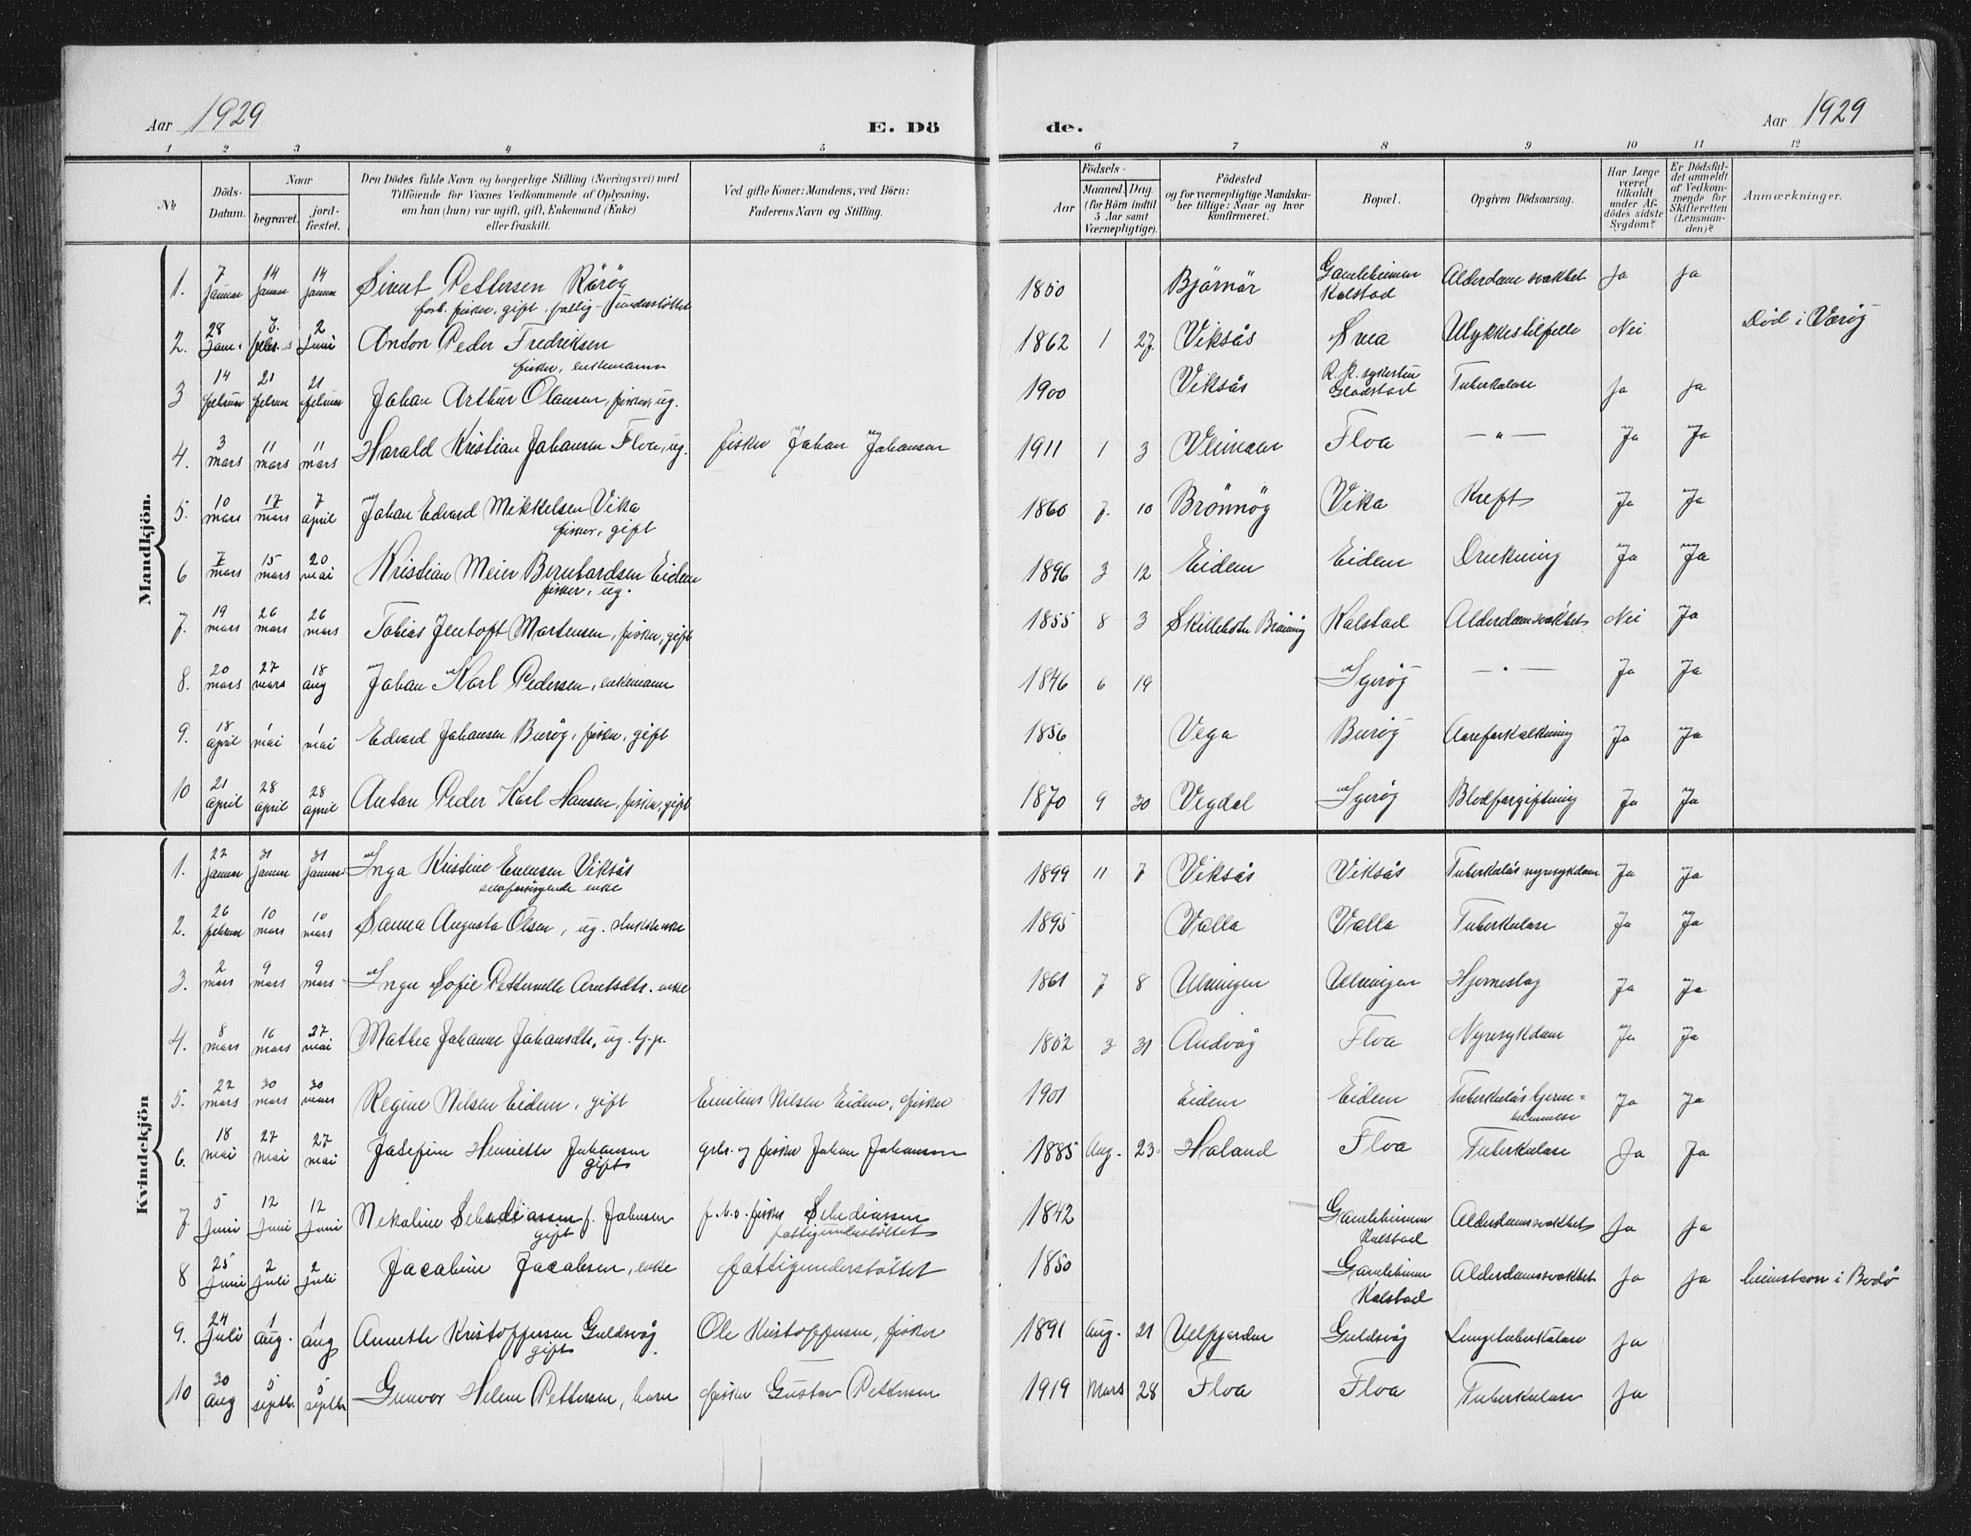 Aar 1929 E. Dö de. Aar 1929
1 2 3 4 5 6 7 8 9 10 11 12
№ Döds-Datum. Naar begravet. jord-fæstet. Den Dödes fulde Navn og borgerlige Stilling (Næringsvei) med Tilföiende for Voxnes Vedkommende af Oplysning, om han (hun) var ugift, gift, Enkemand (Enke) eller fraskilt. Ved gifte Koner: Mandens, ved Börn: Faderens Navn og Stilling. Födsels- Aar Maaned. Dag. (for Börn indtil 5 Aar samt Værnepligtige). Födested og for værnepligtige Mandskaber tillige: Naar og hvor konfirmeret. Bopæl. Opgiven Dödsaarsag. Har Læge været tilkaldt under Afdödes sidste Sygdom? Er Dödsfaldet anmeldt af Vedkommende for Skifteretten (Lensmanden)? Anmærkninger.
Mandkjön.
1. 7 januar 14 januar 14 januar Sivert Pettersen Rörög 1850 Bjørnør Gamleheimen Kalstad Alderdomssvakhet Ja Ja
forh. fisker, gift, fattig-understöttet
2. 28 jan. 7. febr. 2 juni Anton Peder Fredriksen 1862 1 27 Viksås Svea Ulykkestilfelle Nei Död i Værøy
fisker, enkemann
3 14 februar 21 februar 21 februar Johan Arthur Olausen, fisker, ug. 1900 Viksås R.K. sykestue Gladstad Tuberkulose Ja Ja
4. 3 mars 11 mars 11 mars Harald Kristian Johansen Floa, ug. fisker Johan Johansen 1911 1 3 Floa — " — Ja Ja
5. 10 mars 17 mars 7 april Johan Edvard Mikkelsen Vika 1860 7. 10 Brönnög Vika Kreft Ja Ja
fisker, gift
6 7 mars 15 mars 20 mai Kristian Meier Bernhardsen Eidem 1896 3 12 Eidem Eidem Drukning Ja Ja
fisker, ug.
7. 19 mars 26 mars 26 mars Tobias Jentoft Mortensen, fisker, gift 1855 8 3 Kalstad Alderdomssvakhet Nei Ja
8. 20 mars 27 mars 18 aug Johan Karl Pedersen, enkemann 1846 6 19 Igerög — " — Ja Ja
9. 18 april 1 mai 1 mai Edvard Johansen Burög, fisker, gift 1856 Vega Burög Aareforkalkning Ja Ja
10 21 april 28 april 28 april Anton Peder Karl Hansen, fisker, gift 1870 9 30 Vegdal Igerög Blodforgiftning Ja Ja
Kvindekjön
1. 22 januar 31 januar 31 januar Inga Kristine Evensen Viksås 1899 11 7 Viksås Viksås Tuberkulös nyresykdom Ja Ja
selvforsörgende enke
2. 26 februar 10 mars 10 mars Sanna Augusta Olsen, ug. 1895 Valla Valla Tuberkulose Ja Ja
3. 2 mars 9 mars 9 mars Inger Sofie Petternelle Arntsdtr. enke 1861 7 8 Ulvingen Ulvingen Hjerneslag Ja Ja
4. 8 mars 16 mars 27 mai Mathea Johanne Johansdtr. ug. tj.p. 1852 3 31 Andvåg Floa Nyresykdom Ja Ja
5. 22 mars 30 mars 30 mars Regine Nilsen Eidem, gift Emilius Nilsen Eidem, fisker 1901 Eidem Eidem Tuberkulös hjerne= Ja Ja
betennelse
6. 18 mai 27 mai 27 mai Josefine Henriette Johansen grbr. og fisker Johan Johansen 1885 Aug. 23 Haland Floa Tuberkulose Ja Ja
gift
7. 5 juni 12 juni 12 juni Nekoline Sebediassen f. Johnsen f.h.v. fisker Sebediassen 1842 Gamleheimen Kalstad Alderdomssvakhet Ja Ja
gift fattigunderstöttet
8 25 juni 2 juli 2 juli Jacobine Jacobsen, enke fattigunderstöttet 1850 Gamleheimen Kalstad Alderdomssvakhet Ja Ja heimstavn i Bodö
9. 24 juli 1 aug. 1 aug Annette Kristoffersen Guldsvåg Ole Kristoffersen, fisker 1891 Aug. 21 Velfjorden Guldsvåg Lungetuberkulose Ja
gift
10 30 aug 5 septb. 5 septbr Gunvor Helene Pettersen, barn fisker Gustav Pettersen 1919 Mars 28 Floa Floa Tuberkulose Ja